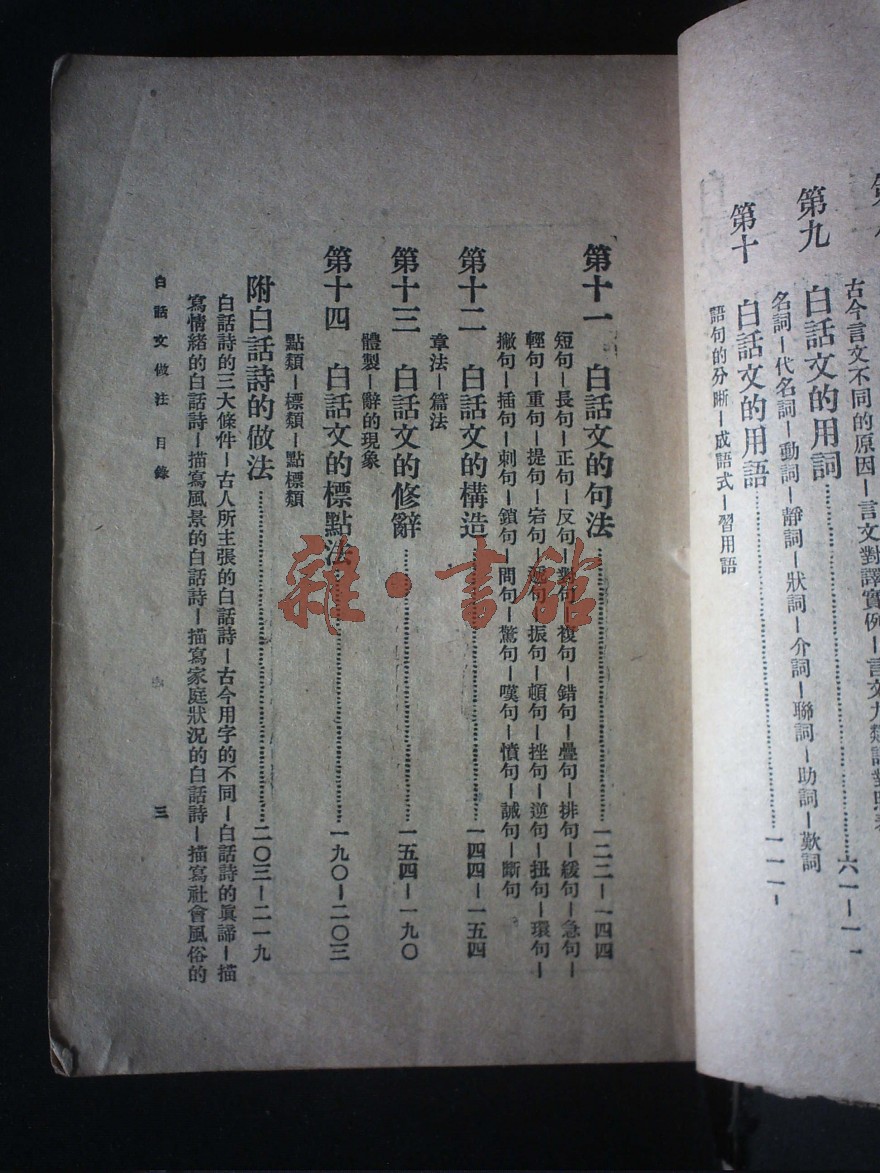 古今言文不同的原因－言文對譯實例－言文九類詞對照
第九　白話文的用詞……六一－一一
名詞－代名詞－動詞－靜詞－狀詞－介詞－聯詞－助詞－歎詞
第十　白話文的用語……一一一－
語句的分晰－成語式－習用語
第十一　白話文的句法……一二二－一四四
短句－長句－正句－反句－對句－複句－錯句－疊句－排句－緩句－急句－
輕句－重句－提句－宕句－句－振句－頓句－挫句－逆句－扭句－環句－
撇句－插句－刺句－鎖句－問句－驚句－嘆句－憤句－誡句－斷句
第十二　白話文的構造……一四四－一五四
章法－篇法
第十三　白話文的修辭……一五四－一九〇
體製－辭的現象
第十四　白話文的標點法……一九〇－二〇三
點類－標類－點標類
附白話詩的做法……二〇三－二一九
白話詩的三大條件－古人所主張的白話詩－古今用字的不同－白話詩的眞諦－描
寫情緒的白話詩－描寫風景的白話詩－描寫家庭狀況的白話詩－描寫社會風俗的
白話文做法　目錄　三
雜·書館